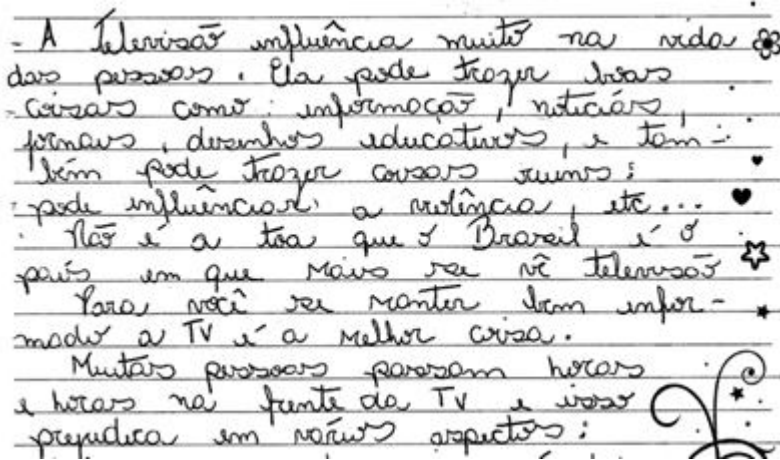 - A Televisão influência muito na vida
das pessoas. Ela pode trazer boas
coisas como: informação, notícias,
jornais, desenhos educativos, e tam-
bém pode trazer coisas ruins:
pode influênciar, a violência, etc...
Não é a toa que o Brasil é o
país em que mais se vê televisão
Para você se manter bem infor-
mado a TV é a melhor coisa.
Muitas pessoas passam horas
e horas na frente da TV e isso
prejudica em vários aspectos: